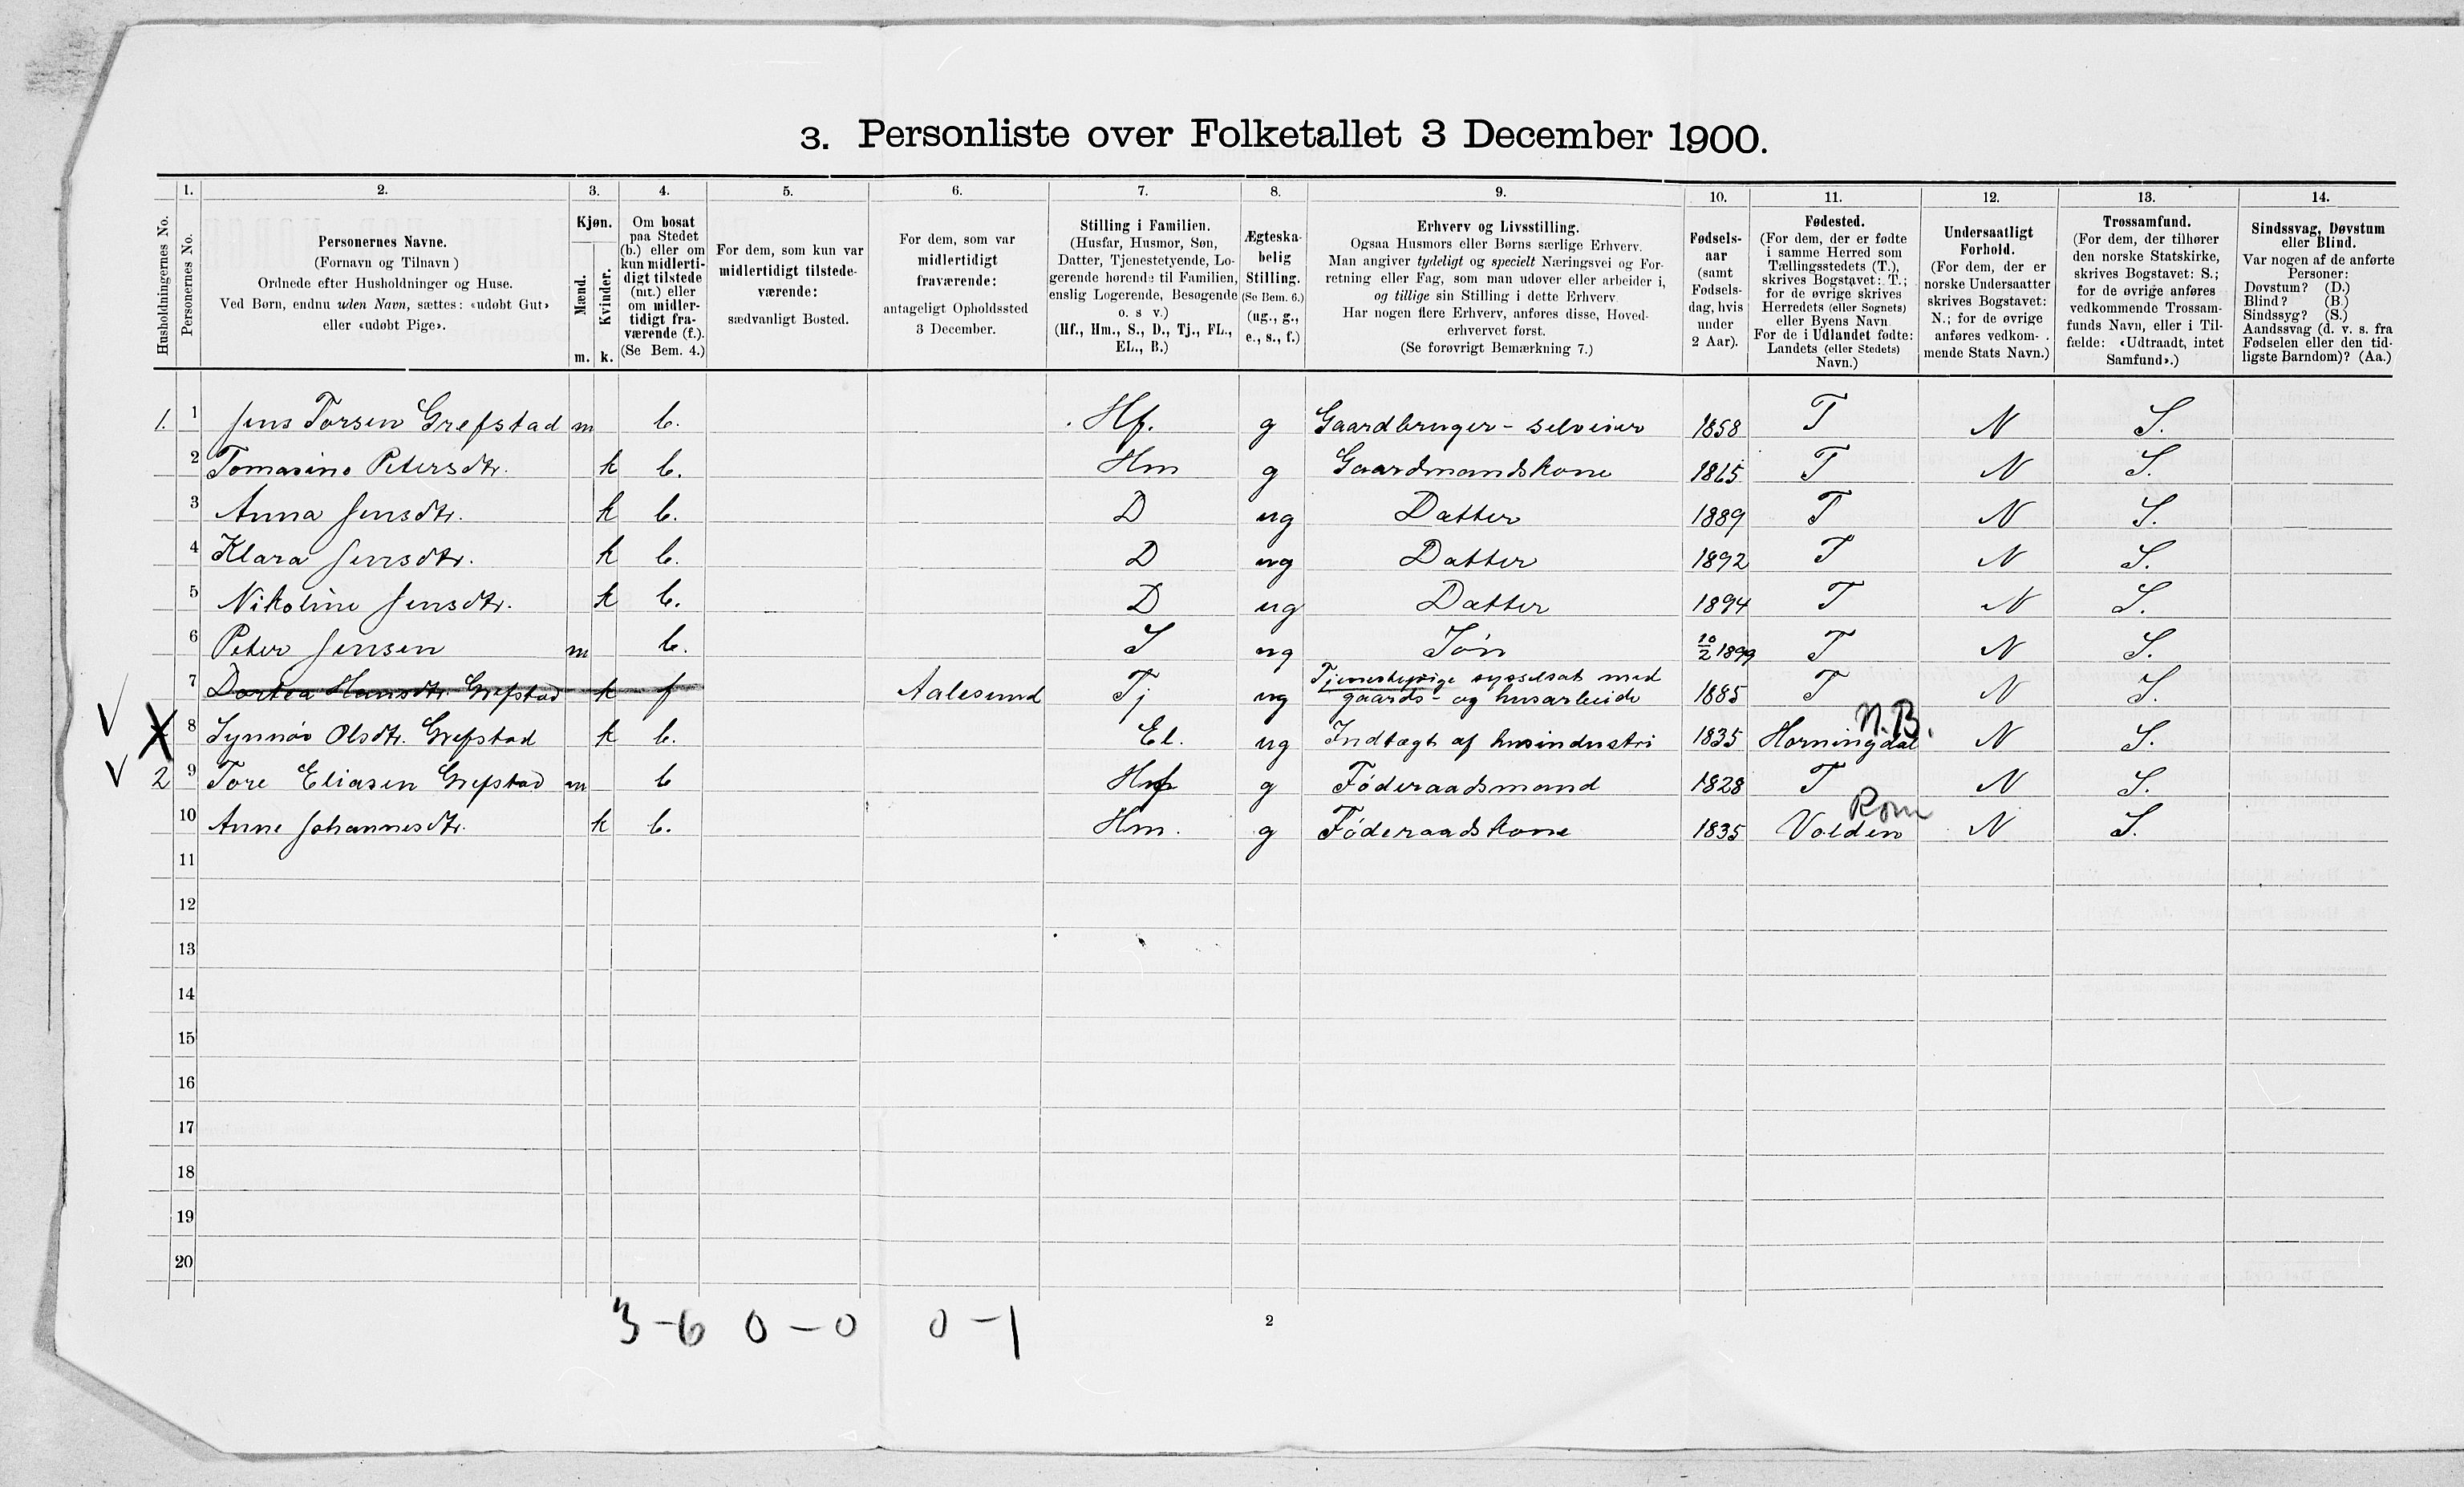 3. Personliste over Folketallet 3 December 1900.
1. 2. 3. 4. 5. 6. 7. 8. 9. 10. 11. 12. 13. 14.
Husholdningernes No.
Personernes No.
Personernes Navne.
(Fornavn og Tilnavn )
Ordnede efter Husholdninger og Huse.
Ved Børn, endnu uden Navn, sættes: «udøbt Gut»
eller «udøbt Pige».
Kjøn.
Mænd.
Kvinder.
m. k.
Om bosat
paa Stedet
(b.) eller om
kun midlerti-
digt tilstede
(mt.) eller
om midler-
tidigt fra-
værende (f.).
(Se Bem. 4.)
For dem, som kun var
midlertidigt tilstede-
værende:
sædvanligt Bosted.
For dem, som var
midlertidigt
fraværende:
antageligt Opholdssted
3 December.
Stilling i Familien.
(Husfar, Husmor, Søn,
Datter, Tjenestetyende, Lo-
gerende hørende til Familien,
enslig Logerende, Besøgende
o. s v.)
(Hf., Hm., S., D., Tj., FL.,
EL., B.)
Ægteska-
belig
Stilling.
(Se Bem. 6.)
(ug., g.,
e., s., f.)
Erhverv og Livsstilling.
Ogsaa Husmors eller Børns særlige Erhverv.
Man angiver tydeligt og specielt Næringsvei og For-
retning eller Fag, som man udøver eller arbeider i,
og tillige sin Stilling i dette Erhverv.
Har nogen flere Erhverv, anføres disse, Hoved-
erhvervet først.
(Se forøvrigt Bemærkning 7.)
Fødsels-
aar
(samt
Fødsels-
dag, hvis
under
2 Aar).
Fødested.
(For dem, der er fødte
i samme Herred som
Tællingsstedets (T.),
skrives Bogstavet: T.;
for de øvrige skrives
Herredets (eller Sognets)
eller Byens Navn.
For de i Udlandet fødte:
Landets (eller Stedets)
Navn.)
Undersaatligt
Forhold.
(For dem, der er
norske Undersaatter
skrives Bogstavet:
N.; for de øvrige
anføres vedkom-
mende Stats Navn.)
Trossamfund.
(For dem, der tilhører
den norske Statskirke,
skrives Bogstavet: S.;
for de øvrige anføres
vedkommende Trossam-
funds Navn, eller i Til-
fælde: «Udtraadt, intet
Samfund».)
Sindssvag, Døvstum
eller Blind.
Var nogen af de anførte
Personer:
Døvstum? (D.)
Blind? (B.)
Sindssyg? (S.)
Aandssvag (d. v. s. fra
Fødselen eller den tid-
ligste Barndom)? (Aa.)
1. 1 Jens Torsen Grefstad m b. Hf. g Gaardbruger - selveier 1858 T N S.
2 Tomasine Petersdtr. k b. Hm g Gaardmandskone 1865 T N S.
3 Anna Jensdtr. k b. D ug Datter 1889 T N S.
4 Klara Jensdtr. k b. D ug Datter 1892 T N S.
5 Nikoline Jensdtr. k b. D ug Datter 1894 T N S.
6 Peter Jensen m b. S ug Søn 10/2 1899 T N S.
7 Dortea Hansdtr. Grefstad k f Aalesund Tj ug Tjenestepige sysselsat med
gaards- og husarbeide 1885 T N S.
8 Synnøv Olsdtr. Grefstad k b. El. ug Indtægt af husindustri 1835 Horningdal N.B. N S.
2 9 Tore Eliasen Grefstad m b Hf g Føderaadsmand 1828 T N S.
10 Anne Johannesdtr. k b. Hm. g Føderaadskone 1835 Volden Rom N S.
11
12
13
14
15
16
17
18
19
20
3-6 0-0 0-1
2